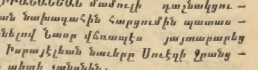 ԻՐԱՆԱԿԱՆ մամուլի դաշնակցու -
նախագահին Հարցումին պատաս -
նելով Նասր վճռապէս յայտարարեց
Իսրայէլեան նաւերը Սուէզի Ջրանց -